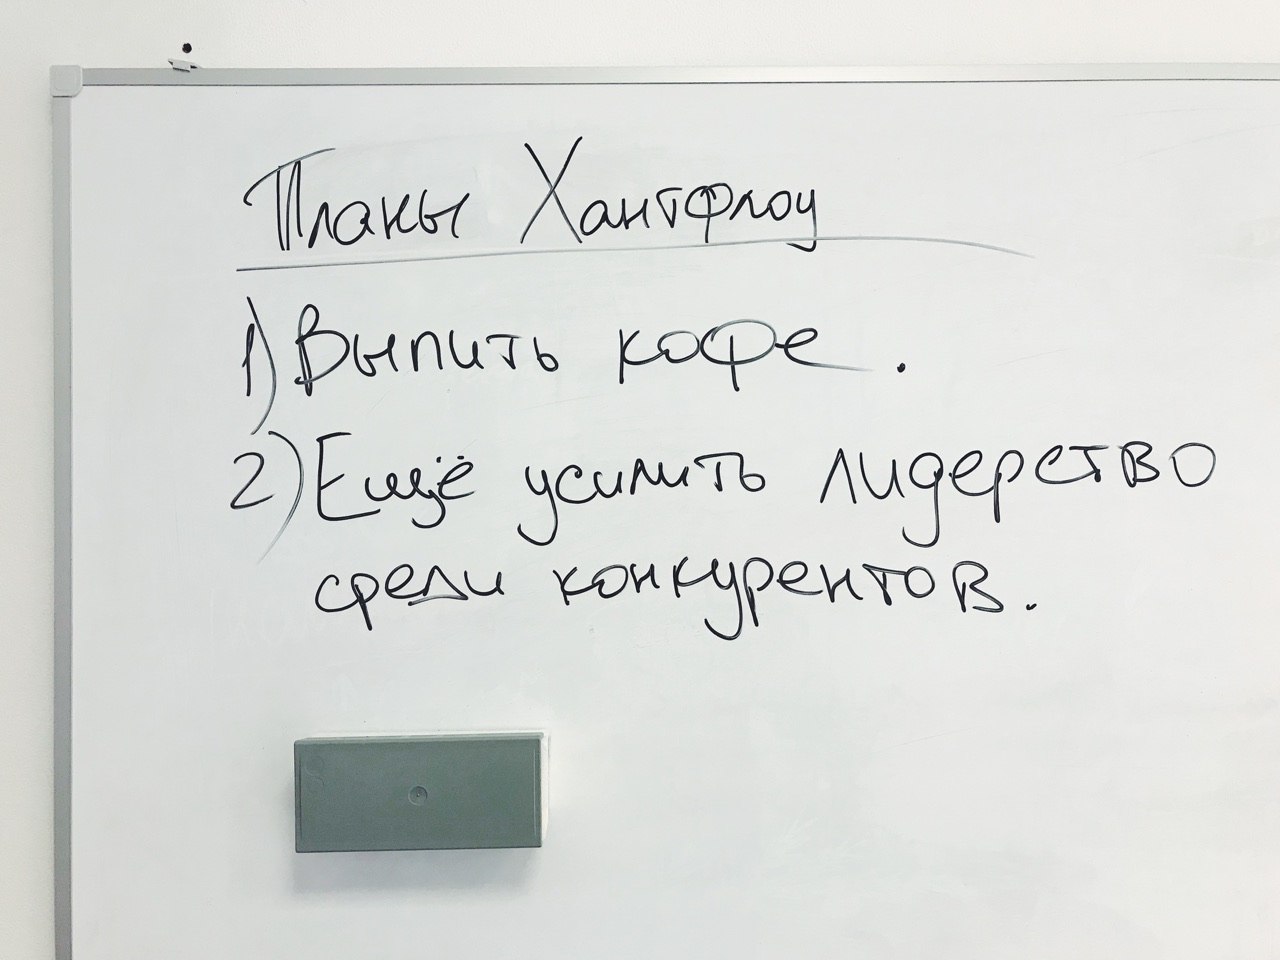 Планы Хантфлоу
1) Выпить кофе.
2) Ещё усилить лидерство
среди конкурентов.